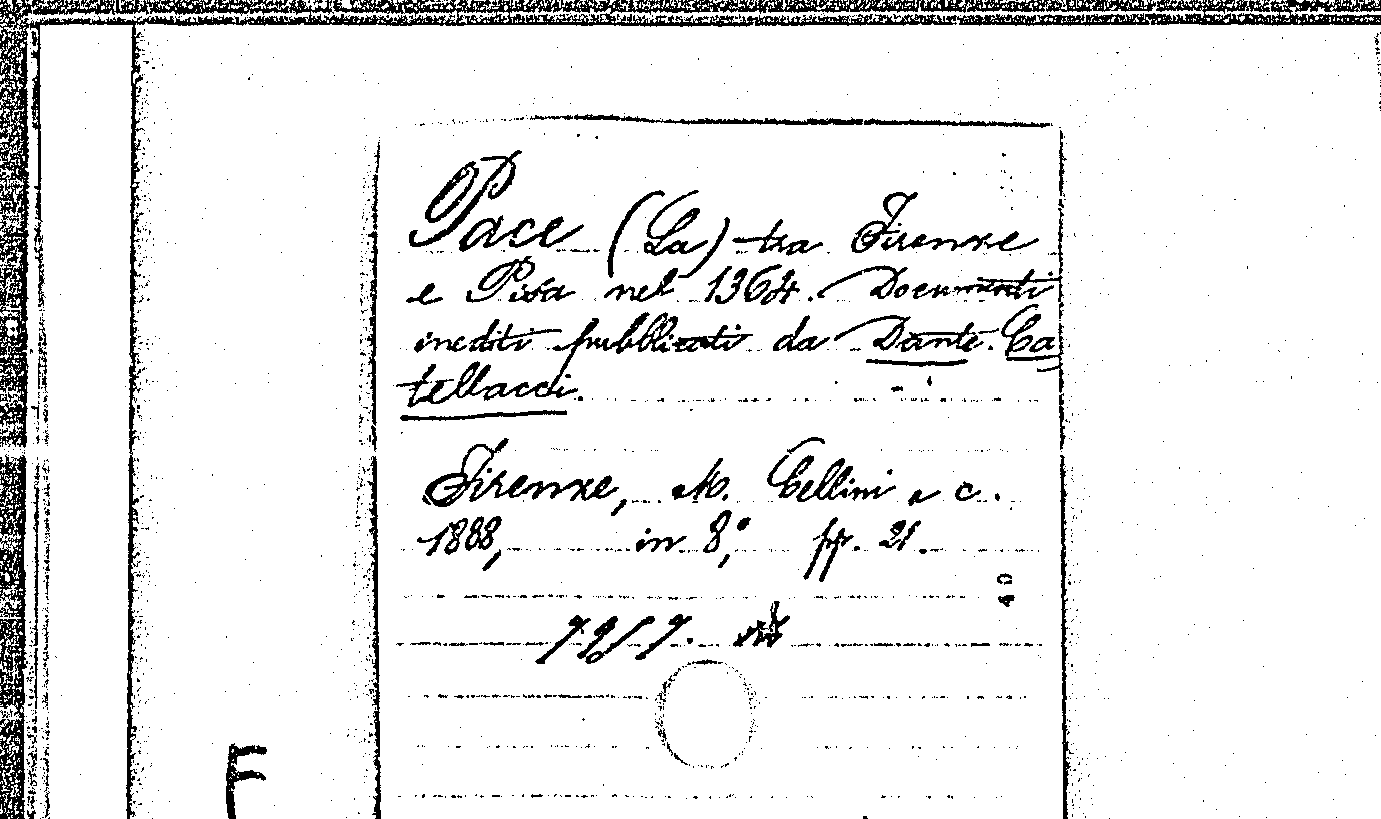 Pace (La) tra Firenze
e Pisa nel 1364. Documenti
inediti pubblicati da Dante Ca
tellacci.
Firenze, M. Cellini e c.
1888, in 8°, pp. 21.
40
F